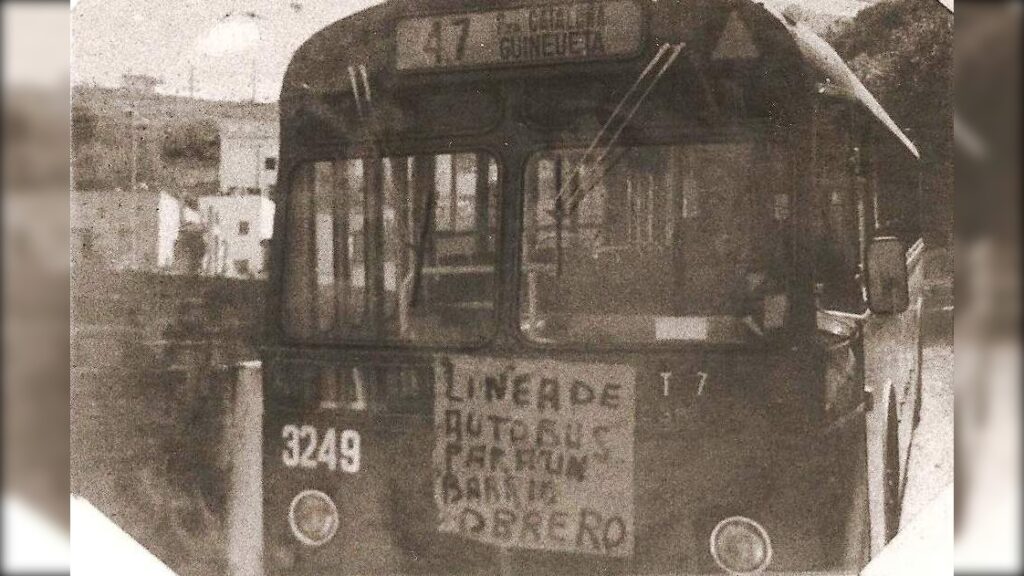 47 Pza CATALUÑA
GUINEUETA
LINEA DE
AUTOBUS
PARA UN
BARRIO
OBRERO
T 7
3249